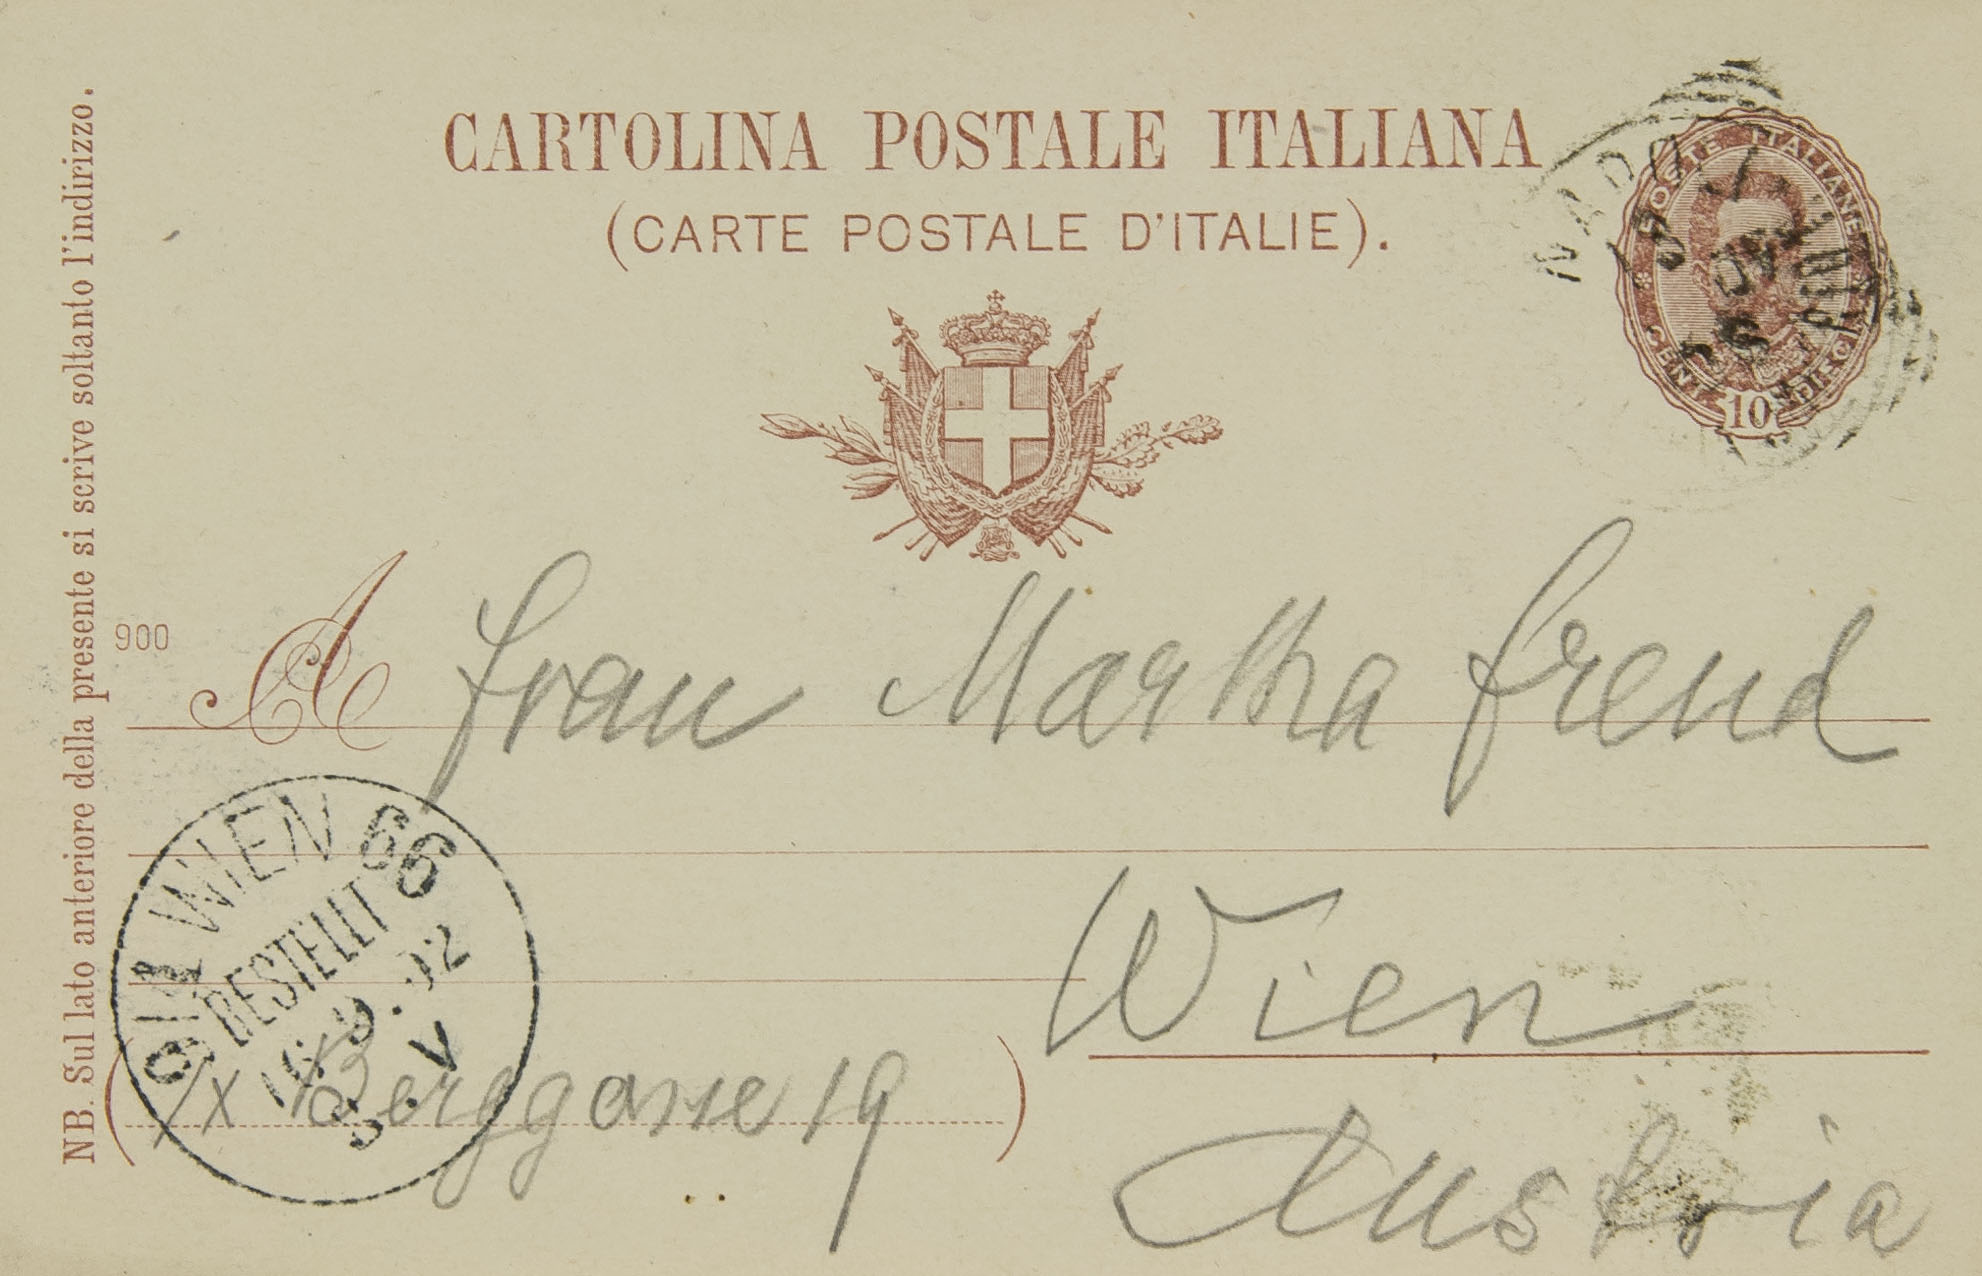 CARTOLINA POSTALE ITALIANA
(CARTE POSTALE D'ITALIE).
POSTE ITALIANE
CENT. DIECI
10
NB. Sul lato anteriore della presente si scrive soltanto l'indirizzo.
900
A Frau Martha Freud
Wien
IX Berggasse 19
Austria
9/1 WIEN 66
BESTELLT
16.9.02
V